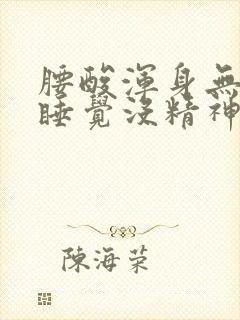 腰酸渾身無
睡覺沒精神
陳海荣